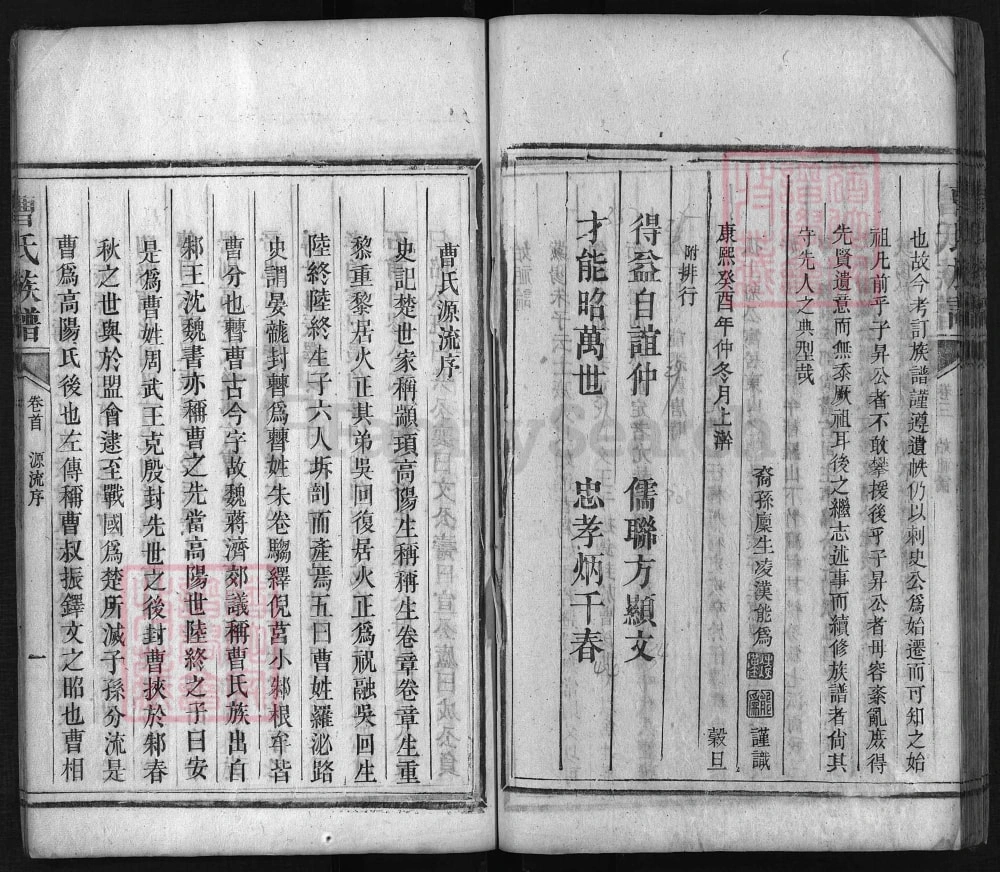 也故今考訂族譜謹遵遺帙仍以刺史公爲始遷而可知之始
祖凡前乎子昇公者不敢攀援後乎子昇公者毋容紊亂庶得
先賢遺意而無忝厥祖耳後之繼志述事而續修族譜者尙其
守先人之典型哉
裔孫廩生凌漢能爲謹識
康熙癸酉年仲冬月上澣 穀旦
附排行
得益自誼仲 儒聯方顯文
才能昭萬世 忠孝炳千春
曹氏源流序
史記楚世家稱顓頊高陽生稱稱生卷章卷章生重
黎重黎居火正其弟吳回復居火正爲祝融吳回生
陸終陸終生子六人坼剖而產焉五曰曹姓羅泌路
史謂晏虄封鄵爲鄵姓朱卷騶繹倪莒小邾根牟皆
曹分也鄵曹古今字故魏蔣濟郊議稱曹氏族出自
邾王沈魏書亦稱曹之先當高陽世陸終之子曰安
是爲曹姓周武王克殷封先世之後封曹挾於邾春
秋之世與於盟會逮至戰國爲楚所滅子孫分流是
曹爲高陽氏後也左傳稱曹叔振鐸文之昭也曹相
曹氏族譜 卷首 源流序 一
FamilySearch